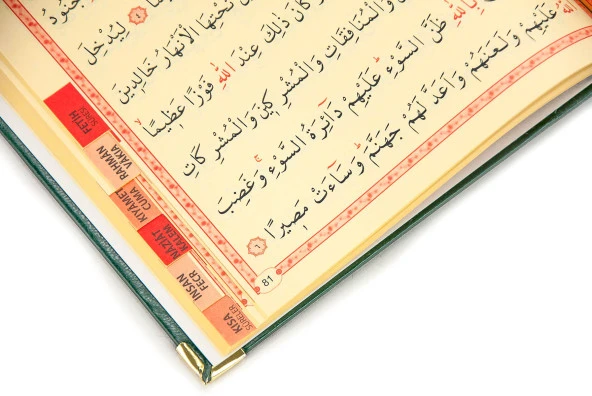 جُنُودُ
لِيُدْخِلَ
تَحْتِهَا الْاَنْهَارُ خَالِدِينَ
كَانَ ذٰلِكَ عِنْدَ اللّٰهِ فَوْزًا عَظِيمًا
وَالْمُنَافِقَاتِ وَالْمُشْرِكِينَ وَالْمُشْرِكَاتِ
بِاللّٰهِ ظَنَّ السَّوْءِ عَلَيْهِمْ دَائِرَةُ السَّوْءِ وَغَضِبَ
عَلَيْهِمْ وَلَعَنَهُمْ وَاَعَدَّ لَهُمْ جَهَنَّمَ وَسَاءَتْ مَصِيرًا ٦
81
FETİH
SURESİ
RAHMAN
VAKIA
KIYAMET
CUMA
NAZİAT
KALEM
İNSAN
FECR
KISA
SURELER